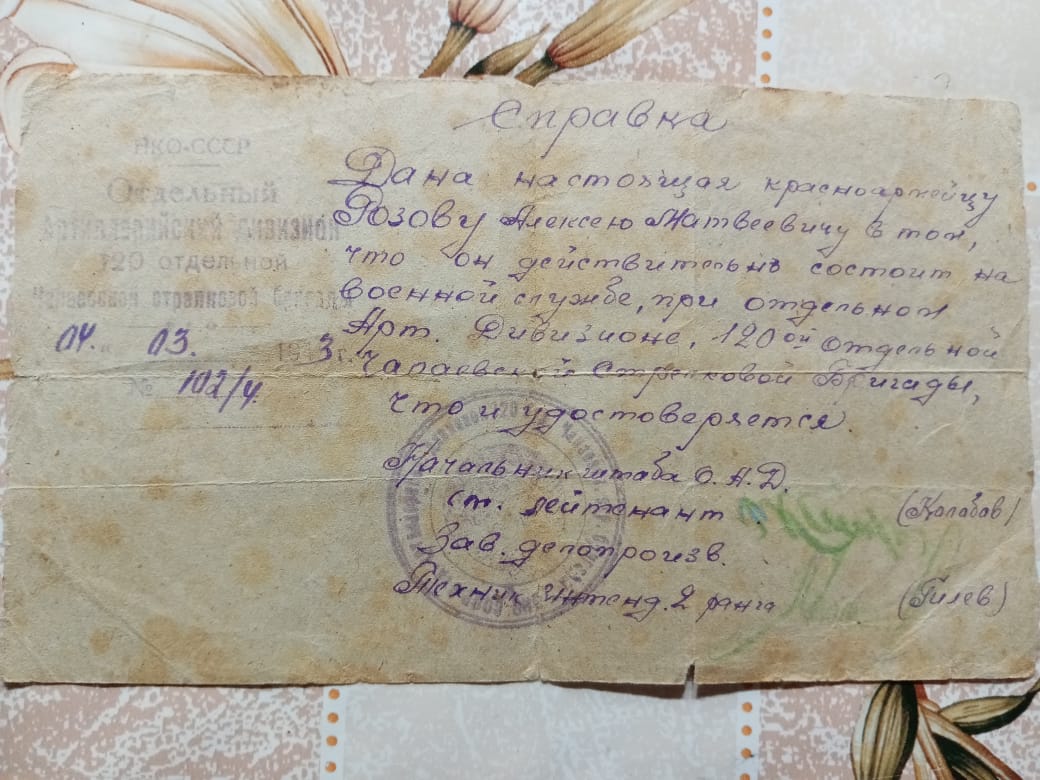 Справка
НКО-СССР
Отдельный
Артиллерийский дивизион
120 отдельной
Чапаевской стрелковой бригады
"04." 03. 1943 г.
№ 102/4.
Дана настоящая красноармейцу
Розову Алексею Матвеевичу в том,
что он действительно состоит на
военной службе, при отдельном
Арт. Дивизионе, 120 ой отдельной
Чапаевской Стрелковой Бригады,
что и удостоверяется.
Начальник штаба О.А.Д.
ст. лейтенант (Колабов)
Зав. делопроизв.
Техник Интенд. 2 ранга (Гилев)